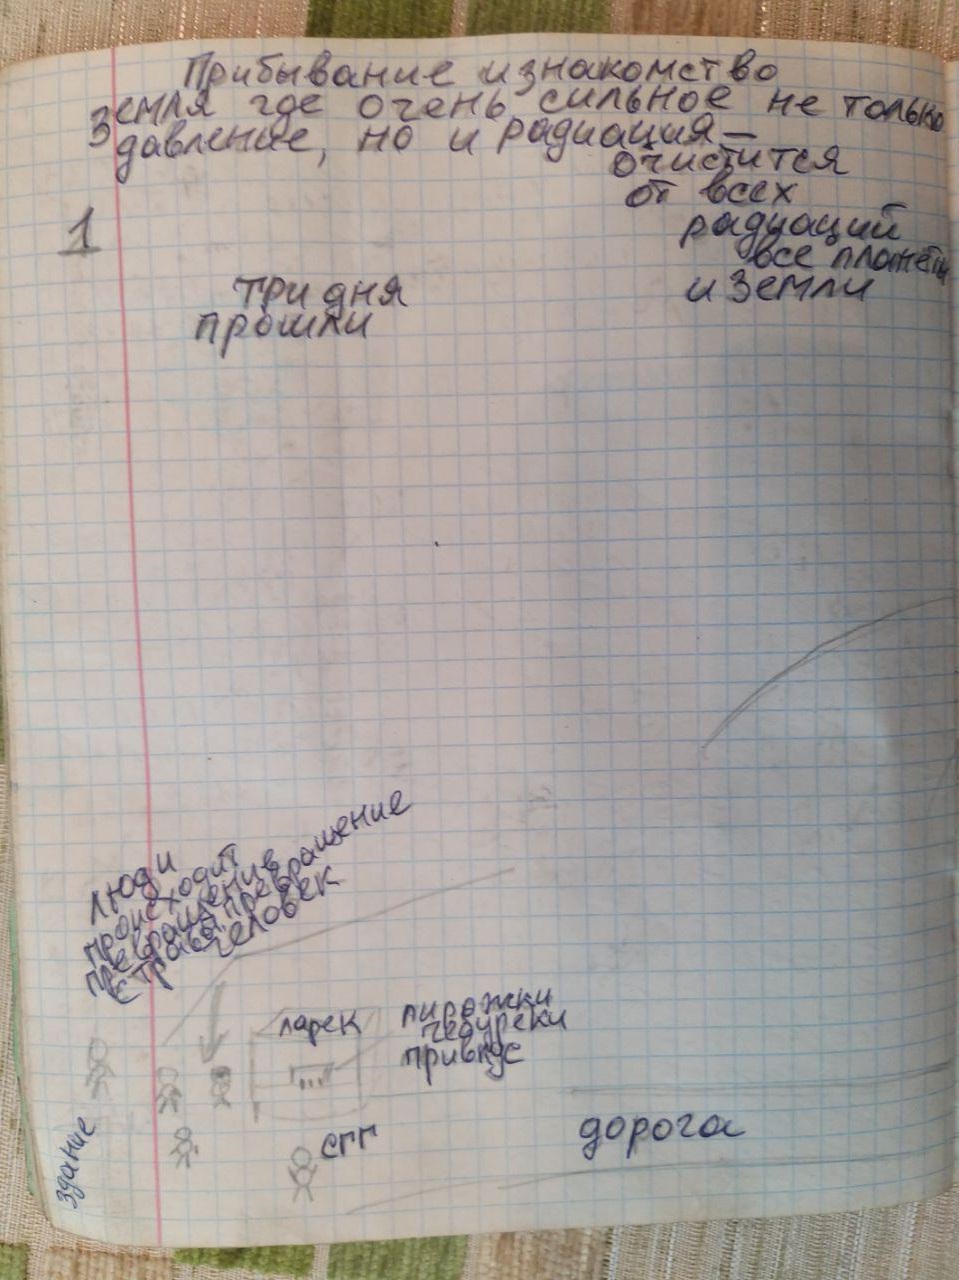 Прибывание и знакомство
Земля где очень сильное не только
давление, но и радиация —
очистится
от всех
радиаций
все планеты
и Земли
1
три дня
прошли
люди
происходит
превращение в
с травы, превращение
человек
ларек
пирожки
чебуреки
привкус
сгг
дорога
здание